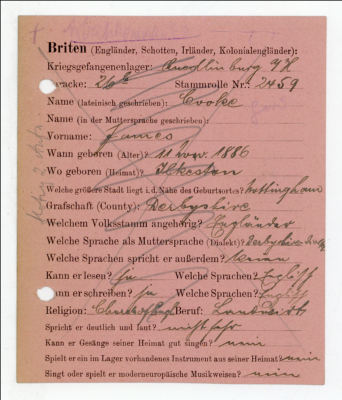 Briten (Engländer, Schotten, Irländer, Kolonialengländer):
Kriegsgefangenenlager: Quedlinburg
aracke: 26b Stammrolle Nr.: 2459
Name (lateinisch geschrieben): Cooke
Name (in der Muttersprache geschrieben):
Vorname: James
Wann geboren (Alter)? 11 nov. 1886
Wo geboren (Heimat)? Ilkeston
Welche größere Stadt liegt i. d. Nähe des Geburtsortes? nottingham
Grafschaft (County): Derbyshire
Welchem Volksstamm angehörig? Engländer
Welche Sprache als Muttersprache (Dialekt)? Derbyshire
Welche Sprachen spricht er außerdem? keine
Kann er lesen? ja Welche Sprachen? Englisch
ann er schreiben? ja Welche Sprachen? Englisch
Religion: Beruf: Landwirt
Spricht er deutlich und laut? nicht sehr
Kann er Gesänge seiner Heimat gut singen? nein
Spielt er ein im Lager vorhandenes Instrument aus seiner Heimat? nein
Singt oder spielt er moderneuropäische Musikweisen? nein